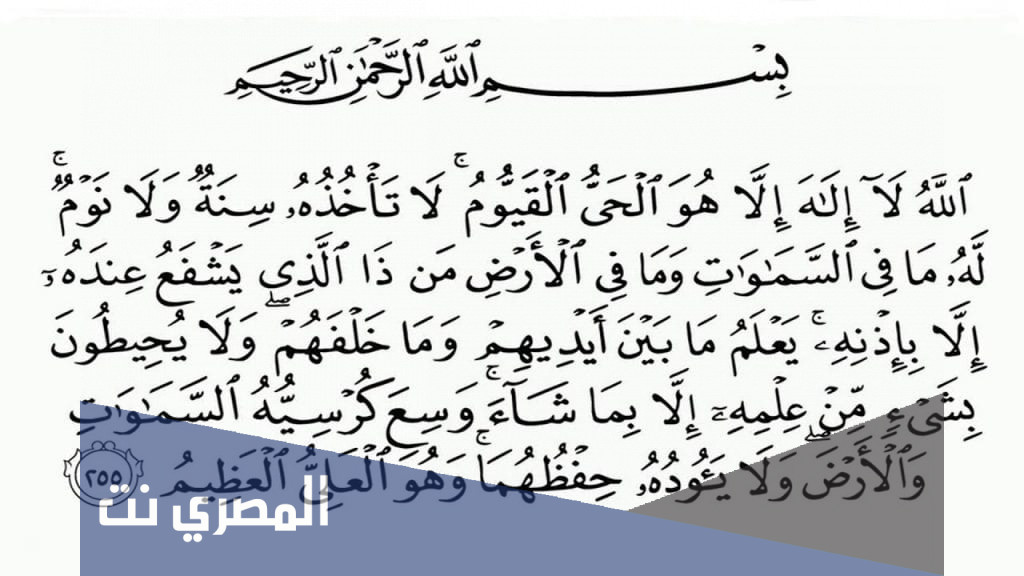 بِسْمِ ٱللَّهِ ٱلرَّحْمَٰنِ ٱلرَّحِيمِ
ٱللَّهُ لَآ إِلَٰهَ إِلَّا هُوَ ٱلْحَىُّ ٱلْقَيُّومُ ۚ لَا تَأْخُذُهُۥ سِنَةٌ وَلَا نَوْمٌ ۚ
لَّهُۥ مَا فِى ٱلسَّمَٰوَٰتِ وَمَا فِى ٱلْأَرْضِ مَن ذَا ٱلَّذِى يَشْفَعُ عِندَهُۥٓ
إِلَّا بِإِذْنِهِۦ ۚ يَعْلَمُ مَا بَيْنَ أَيْدِيهِمْ وَمَا خَلْفَهُمْ ۖ وَلَا يُحِيطُونَ
بِشَىْءٍ مِّنْ عِلْمِهِۦٓ إِلَّا بِمَا شَآءَ ۚ وَسِعَ كُرْسِيُّهُ ٱلسَّمَٰوَٰتِ
وَٱلْأَرْضَ ۖ وَلَا يَـُٔودُهُۥ حِفْظُهُمَا ۚ وَهُوَ ٱلْعَلِىُّ ٱلْعَظِيمُ ٢٥٥
المصري نت